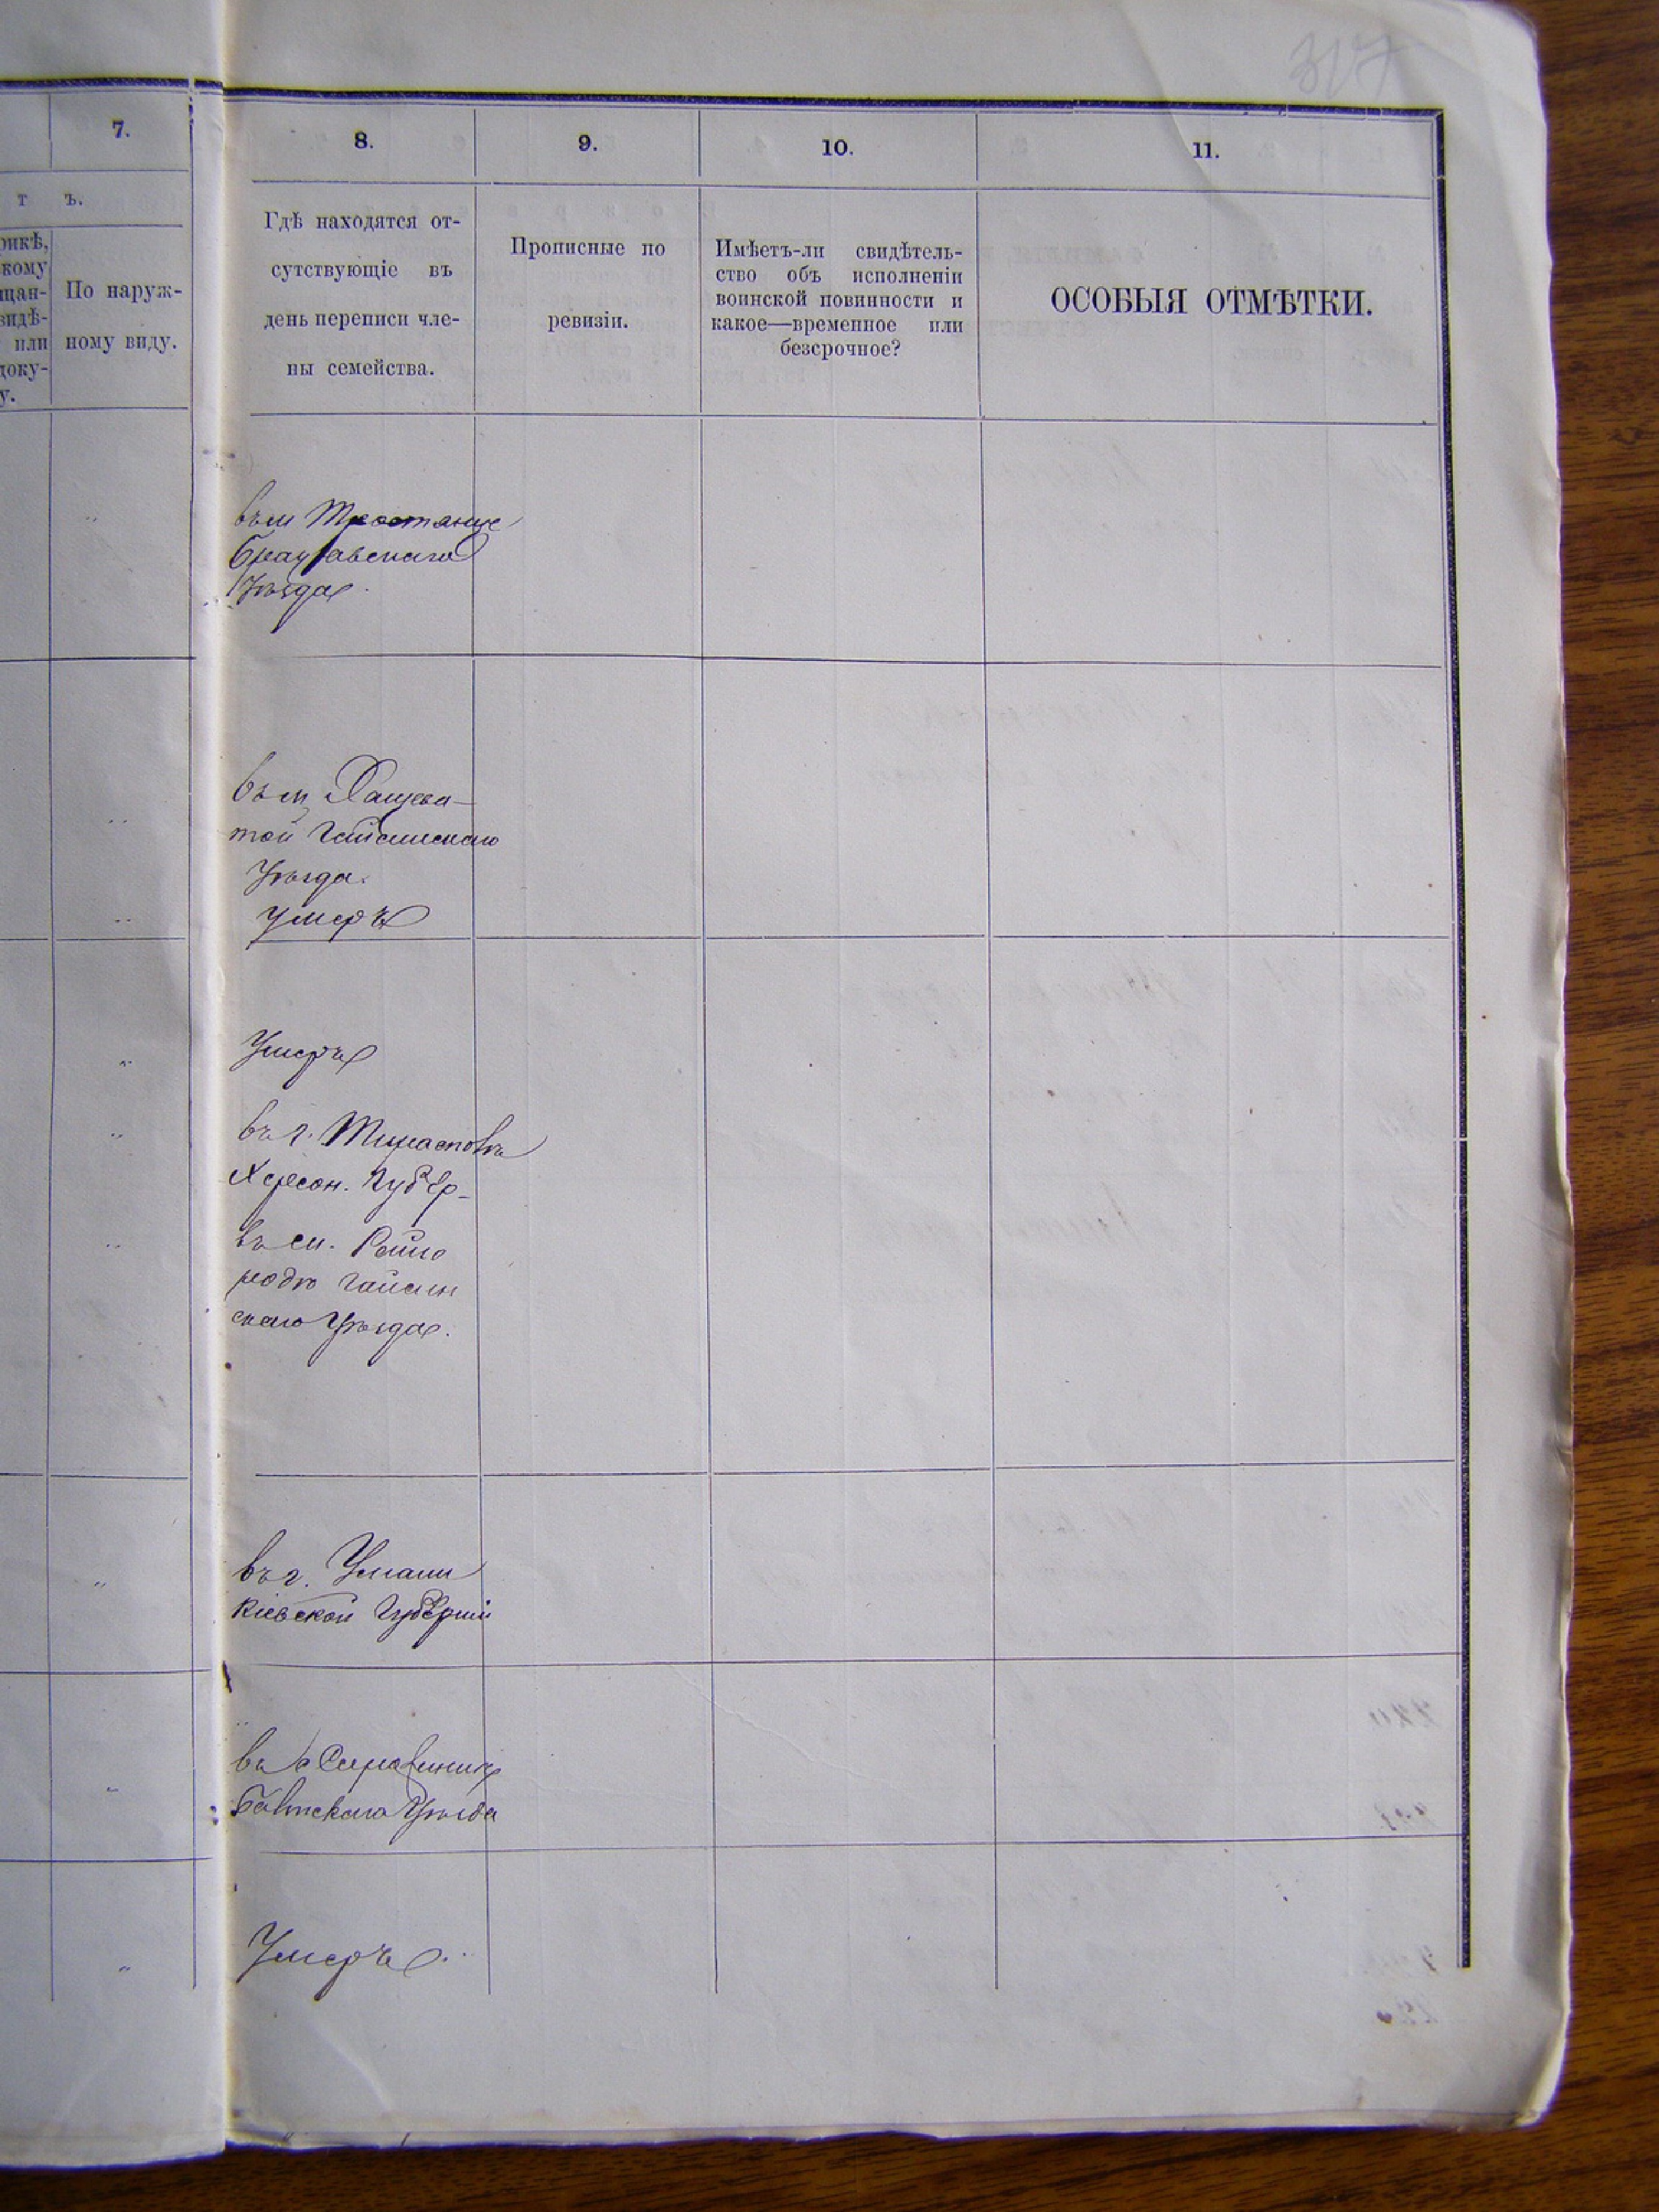 317
7.
8.
9.
10.
11.
т ъ.
рикѣ,
кому
щан-
видѣ-
или
доку-
у.
По наруж-
ному виду.
Гдѣ находятся от-
сутствующіе въ
день переписи чле-
ны семейства.
Прописные по
ревизіи.
Имѣетъ-ли свидѣтель-
ство объ исполненіи
воинской повинности и
какое—временное или
безсрочное?
ОСОБЫЯ ОТМѢТКИ.
въ м Тростянце
Брацлавскаго
Уѣзда.
въ м Хащева-
той Гайсинскаго
Уѣзда.
умеръ
Умеръ
въ г. Тирасполѣ
Херсон. Губер-
въ м. Райго
родѣ Гайсин
скаго Уѣзда.
въ г. Умани
Кіевской Губерніи
въ
Балтскаго Уѣзда
Умеръ.